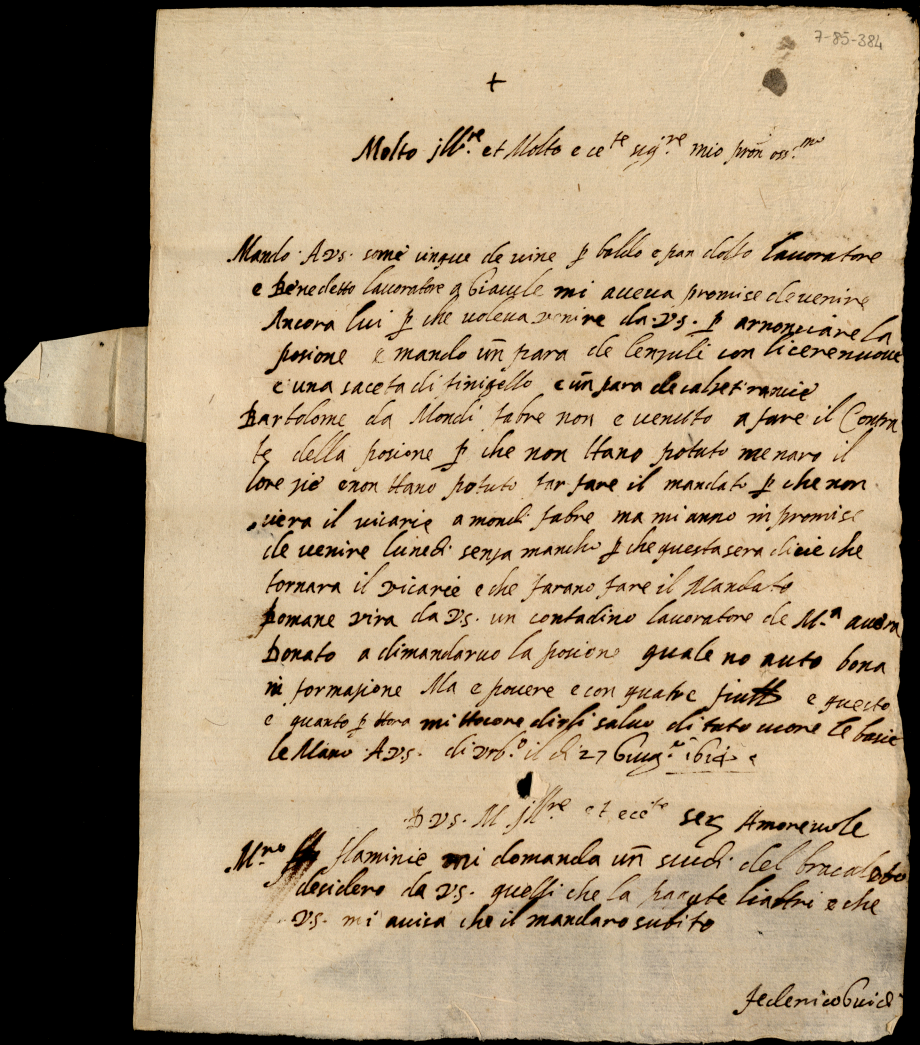 7-85-384
+
Molto jll.re et Molto ecc.te sig.re mio pron oss.mo
Mando A vs. some cinque de vine p baldo e pan dolfo lavoratore
e Benedetto lavoratore a mi aveva promise de venire
Ancora lui p che voleva venire da vs. p arnonciare la
posione e mando un para de lenzuli con
e una saceta di e un para de calset
Bartolome da Mondi fabre non e venuto a fare il Contra
te della posione p che non Hano potuto menare il
e non Hano potuto far fare il mandato p che non
vera il vicarie a mondi fabre ma mi anno in promise
de venire lunedi senza mancho p che questa sera dicie che
tornara il vicarie e che farano fare il Mandato
Domane vira da vs. un contadino lavoratore de M.a
Donato a dimandarvo la posione quale no auto bona
in formazione Ma e povere e con quatre e questo
e quanto p Hora mi dirli salvo di tuto cuore le bacie
le Mano A vs. di Urb.o il di 27 Giug.o 1614
D vs. M jll.re et ecc.te ser Amorevole
M.ro flaminie mi domanda un scudi del
desidero da vs. che la li altri e che
vs. mi avisa che il mandaro subito
federico Guid